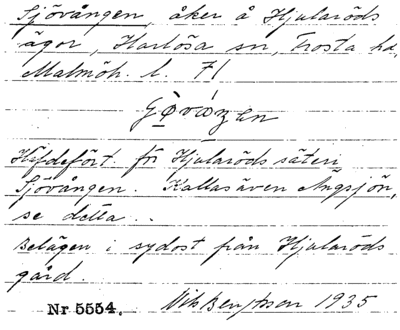 Sjövången, åker å Hjularöds
ägor, Harlösa sn, Frosta hd,
Malmöh. l. 71
för Hjularöds säteri
Sjövången. Kallas även Ängsjön,
se detta.
Belägen i sydost från Hjularöds
gård.
Nr 5554. Nils Bengtsson 1935